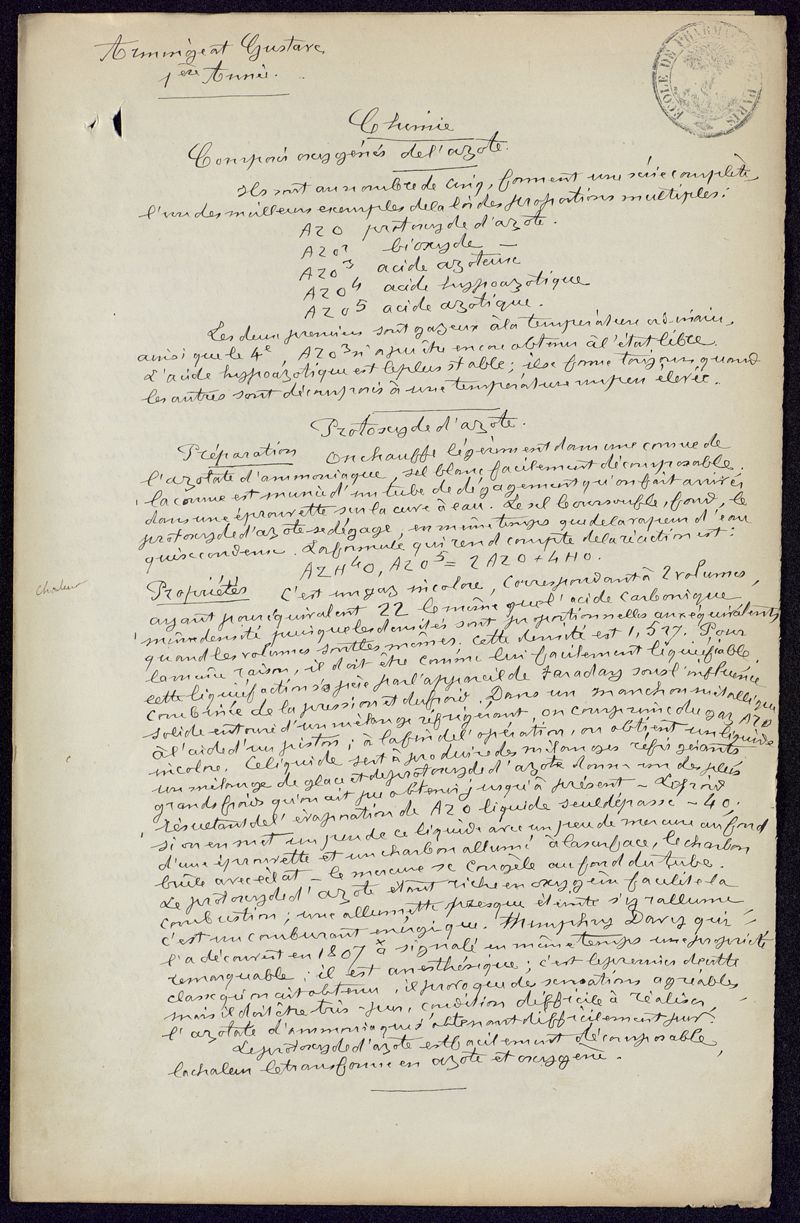 Armingeat Gustave
1ère Année.
ECOLE DE PHARMACIE DE PARIS
Chimie
Composés oxygénés de l'azote.
Ils sont au nombre de cinq, forment une série complète,
l'un des meilleurs exemples de la loi des proportions multiples :
AzO protoxyde d'azote.
AzO² bioxyde —
AzO³ acide azoteux
AzO⁴ acide hypoazotique
AzO⁵ acide azotique.
Les deux premiers sont gazeux à la température ordinaire,
ainsi que le 4e, AzO³ n'a pu être encore obtenu à l'état libre.
L'acide hypoazotique est le plus stable ; il se forme toujours quand
les autres sont décomposés à une température un peu élevée.
Protoxyde d'azote.
Préparation On chauffe légèrement dans une cornue de
l'azotate d'ammoniaque, sel blanc facilement décomposable.
la cornue est munie d'un tube de dégagement qu'on fait arriver
dans une éprouvette sur la cuve à eau. Le sel boursoufle, fond, le
protoxyde d'azote se dégage, en même temps que de la vapeur d'eau
qui se condense. La formule qui rend compte de la réaction est :
AzH⁴O, AzO⁵ = 2AzO + 4HO.
chaleur
Propriétés C'est un gaz incolore, correspondant à 2 volumes,
ayant pour équivalent 22 le même que l'acide carbonique
même densité puisque les densités sont proportionnelles aux équivalents
quand les volumes sont les mêmes. Cette densité est 1,527. Pour
la même raison, il doit être comme lui facilement liquéfiable.
cette liquéfaction s'opère par l'appareil de Faraday sous l'influence
combinée de la pression et du froid. Dans un manchon métallique
solide entouré d'un mélange réfrigérant, on comprime du gaz AzO
à l'aide d'un piston ; à la fin de l'opération, on obtient un liquide
incolore. Ce liquide sert à produire des mélanges réfrigérants
un mélange de glace et de protoxyde d'azote donne un des plus
grands froids qu'on ait pu obtenir jusqu'à présent — Le froid
résultant de l'évaporation de AzO liquide seul dépasse - 40.
si on en met un peu de ce liquide avec un peu de mercure au fond
d'une éprouvette et un charbon allumé à la surface, le charbon
brûle avec éclat — le mercure se congèle au fond du tube.
Le protoxyde d'azote étant riche en oxygène facilite la
combustion ; une allumette presque éteinte s'y rallume
c'est un comburant énergique. Humphry Davy qui
l'a découvert en 1807 a signalé en même temps une propriété
remarquable : il est anesthésique ; c'est le premier de cette
classe qu'on ait obtenu, il provoque des sensations agréables
mais il doit être très-pur, condition difficile à réaliser,
l'azotate d'ammoniaque s'obtenant difficilement pur.
Le protoxyde d'azote est facilement décomposable,
la chaleur le transforme en azote et oxygène.